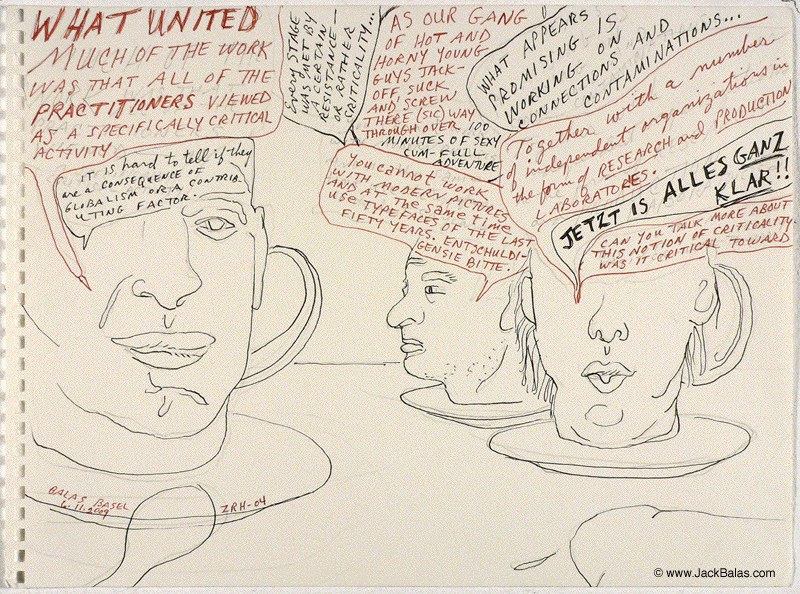 WHAT UNITED
MUCH OF THE WORK
WAS THAT ALL OF THE
PRACTITIONERS VIEWED
AS A SPECIFICALLY CRITICAL
ACTIVITY
it is hard to tell if they
are a CONSEQUENCE OF
GLOBALISM OR A CONTRIB-
UTING FACTOR.
Every STAGE
WAS MET BY
A CERTAIN
RESISTANCE—
OR RATHER
CRITICALITY...
AS OUR GANG
OF HOT AND
HORNY YOUNG
GUYS JACK-
OFF, SUCK
AND SCREW
THERE (SIC) WAY
THROUGH OVER 100
MINUTES OF SEXY
CUM-FULL
ADVENTURE
WHAT APPEARS
PROMISING IS
WORKING ON
CONNECTIONS AND
CONTAMINATIONS...
Together with a number
of independent organizations in
the form of RESEARCH and PRODUCTION
LABORATORIES.
You cannot work
WITH MODERN PICTURES
AND AT THE SAME time
USE TYPEFACES OF THE LAST
FIFTY YEARS, ENTSCHULDI-
GENSIE BITTE.
JETZT IS ALLES GANZ
KLAR!!
CAN YOU TALK MORE ABOUT
THIS NOTION OF CRITICALITY.
WAS IT CRITICAL TOWARD
BALAS BASEL
6.11.2009
ZRH-04
© www.JackBalas.com